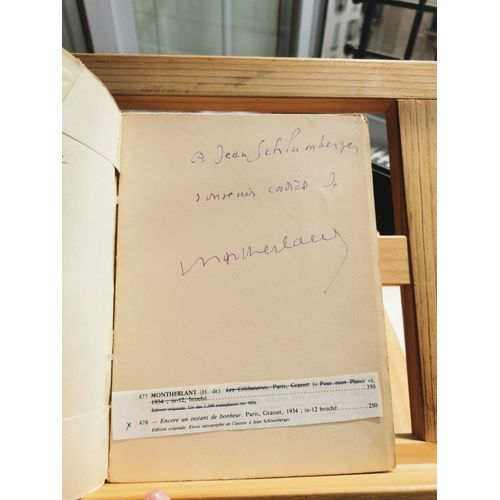 à Jean Schlumberger
souvenir cordial de
Montherlant
477 MONTHERLANT (H. de). Les Célibataires. Paris, Grasset (« Pour mon Plaisir »),
1934 ; in-12, broché. 350
Edition originale. Un des
x 478 — Encore un instant de bonheur. Paris, Grasset, 1934 ; in-12 broché. 250
Edition originale. Envoi autographe de l'auteur à Jean Schlumberger.